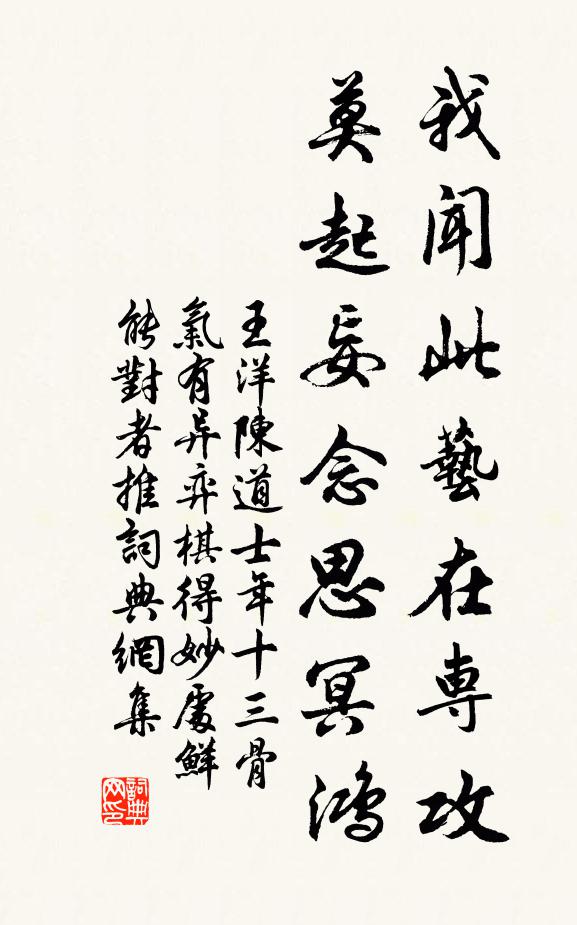 我聞此藝在専攻
莫起妄念思冥鴻
王洋陳道士年十三骨
氣有异弈棋得妙處鮮
能對者推詞典網集
詞典网印